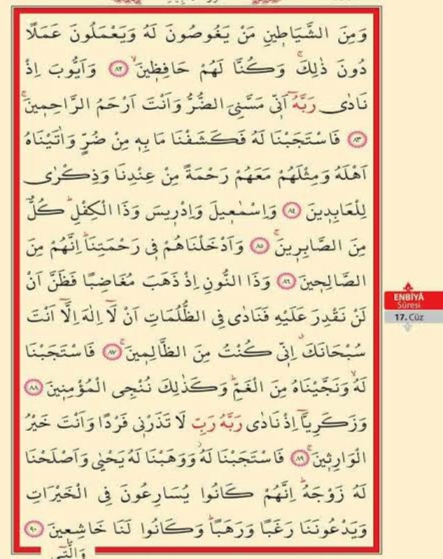 وَمِنَ الشَّيَاطِينِ مَنْ يَغُوصُونَ لَهُ وَيَعْمَلُونَ عَمَلًا
دُونَ ذٰلِكَۚ وَكُنَّا لَهُمْ حَافِظِينَۙ ٨٢ وَاَيُّوبَ اِذْ
نَادٰى رَبَّهُٓ اَنِّى مَسَّنِىَ الضُّرُّ وَاَنْتَ اَرْحَمُ الرَّاحِمِينَۚ
٨٣ فَاسْتَجَبْنَا لَهُ فَكَشَفْنَا مَا بِهِ مِنْ ضُرٍّ وَاٰتَيْنَاهُ
اَهْلَهُ وَمِثْلَهُمْ مَعَهُمْ رَحْمَةً مِنْ عِنْدِنَا وَذِكْرٰى
لِلْعَابِدِينَ ٨٤ وَاِسْمٰعِيلَ وَاِدْرِيسَ وَذَا الْكِفْلِۜ كُلٌّ
مِنَ الصَّابِرِينَۚ ٨٥ وَاَدْخَلْنَاهُمْ فِى رَحْمَتِنَاۜ اِنَّهُمْ مِنَ
الصَّالِحِينَ ٨٦ وَذَا النُّونِ اِذْ ذَهَبَ مُغَاضِبًا فَظَنَّ اَنْ
لَنْ نَقْدِرَ عَلَيْهِ فَنَادٰى فِى الظُّلُمَاتِ اَنْ لَٓا اِلٰهَ اِلَّٓا اَنْتَ
سُبْحَانَكَۗ اِنِّى كُنْتُ مِنَ الظَّالِمِينَۚ ٨٧ فَاسْتَجَبْنَا
لَهُۙ وَنَجَّيْنَاهُ مِنَ الْغَمِّۜ وَكَذٰلِكَ نُنْجِى الْمُؤْمِنِينَ ٨٨
وَزَكَرِيَّٓا اِذْ نَادٰى رَبَّهُ رَبِّ لَا تَذَرْنِى فَرْدًا وَاَنْتَ خَيْرُ
الْوَارِثِينَۚ ٨٩ فَاسْتَجَبْنَا لَهُۘ وَوَهَبْنَا لَهُ يَحْيٰى وَاَصْلَحْنَا
لَهُ زَوْجَهُۜ اِنَّهُمْ كَانُوا يُسَارِعُونَ فِى الْخَيْرَاتِ
وَيَدْعُونَنَا رَغَبًا وَرَهَبًاۜ وَكَانُوا لَنَا خَاشِعِينَ ٩٠
وَالَّتِٓى
ENBİYÂ
Sûresi
17. Cüz